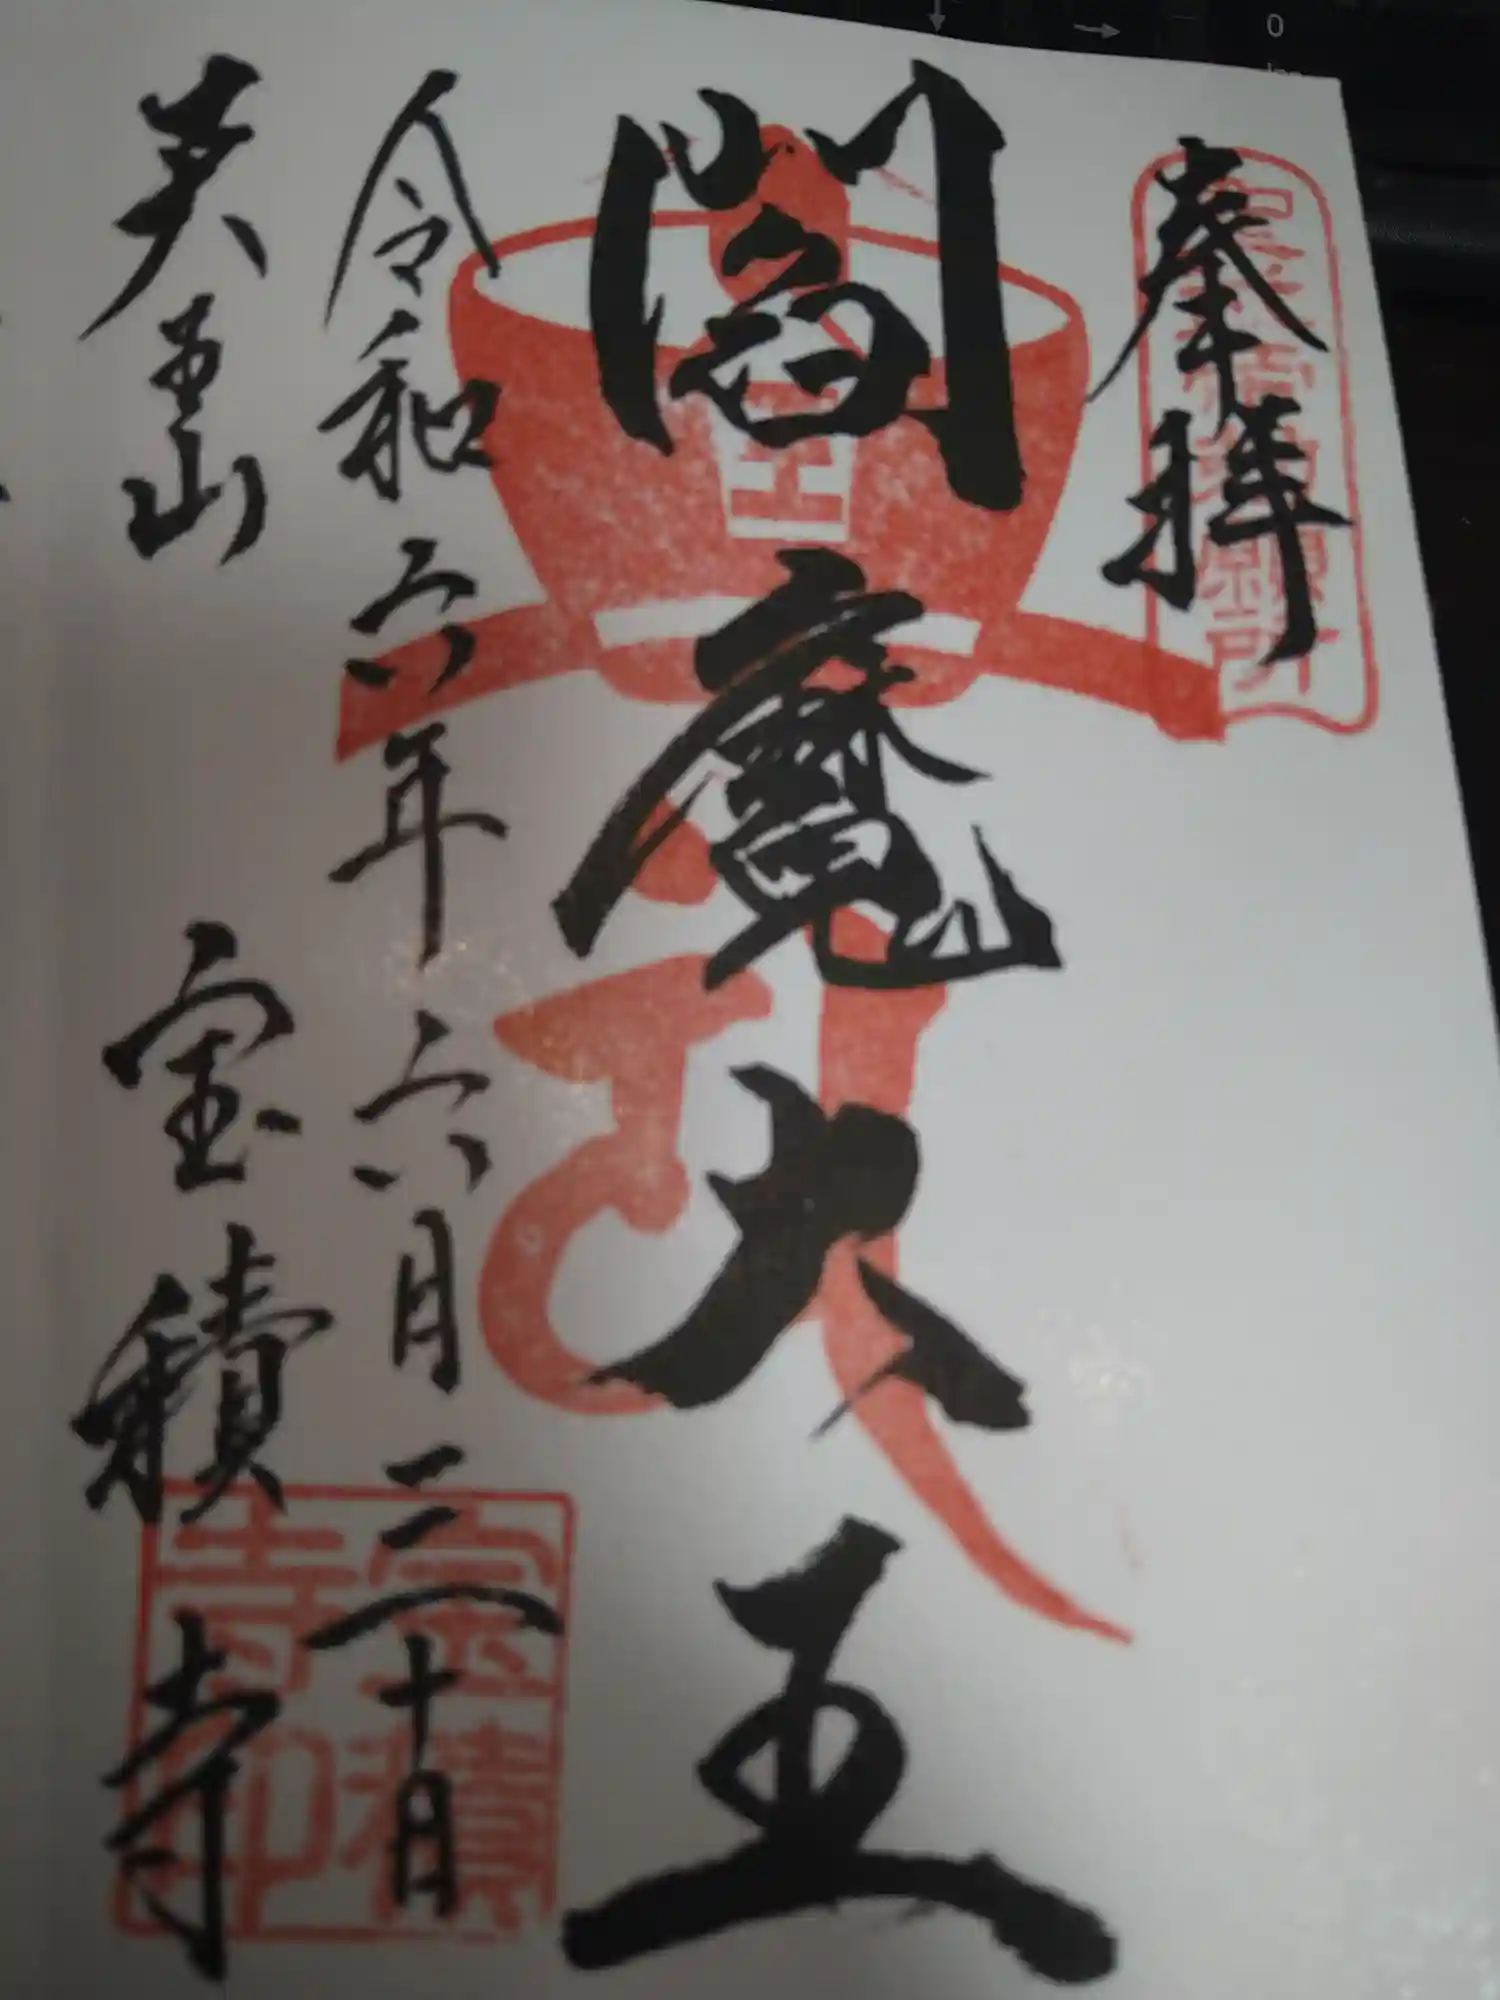 奉拝
閻魔大王
令和六年六月二十日
天王山 宝積寺
王
宝積寺印
0